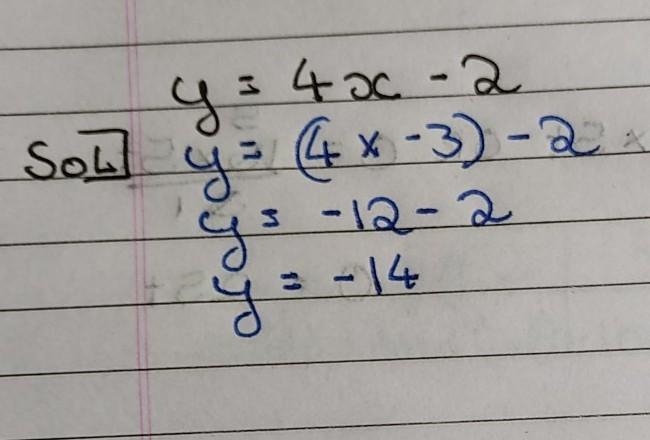 y = 4x - 2
Sol y = (4 x -3) - 2
y = -12 - 2
y = -14